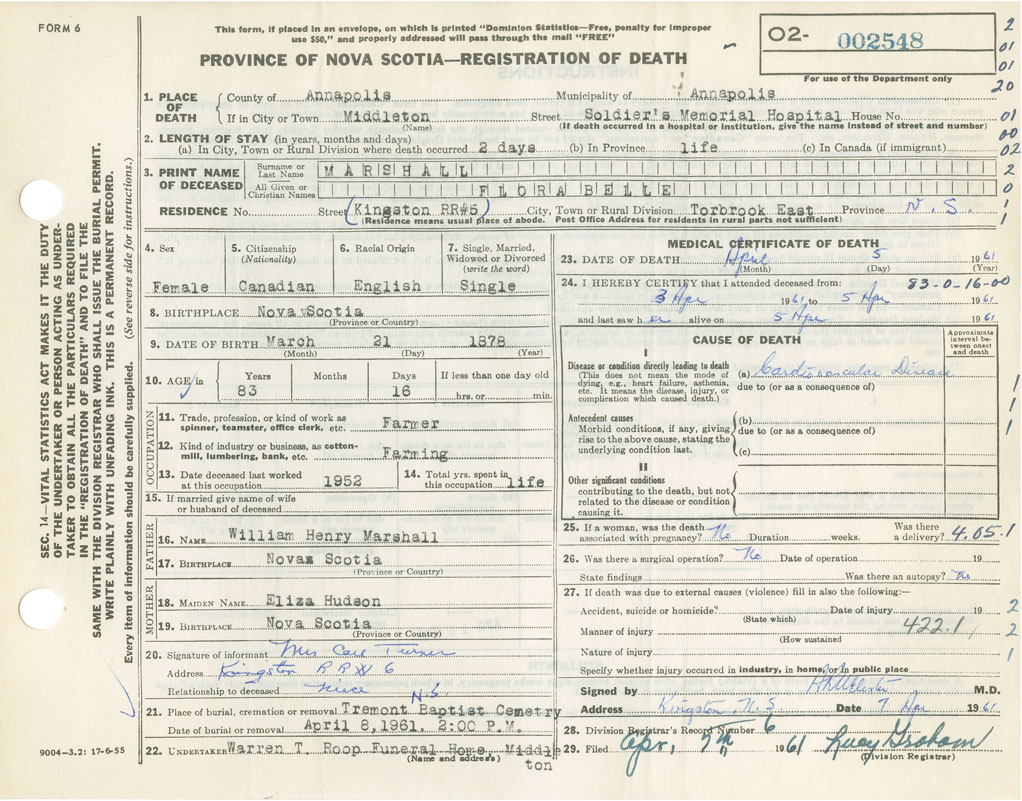 FORM 6
This form, if placed in an envelope, on which is printed "Dominion Statistics—Free, penalty for improper
use $50," and properly addressed will pass through the mail "FREE"
PROVINCE OF NOVA SCOTIA—REGISTRATION OF DEATH
O2- 002548
For use of the Department only
2
01
01
20
01
00
02
2
0
1
1
1. PLACE OF DEATH { County of Annapolis Municipality of Annapolis
If in City or Town Middleton Street Soldier's Memorial Hospital House No.
(Name) (If death occurred in a hospital or institution, give the name instead of street and number)
2. LENGTH OF STAY (in years, months and days)
(a) In City, Town or Rural Division where death occurred 2 days (b) In Province life (c) In Canada (if immigrant)
3. PRINT NAME OF DECEASED { Surname or Last Name MARSHALL
All Given or Christian Names FLORA BELLE
RESIDENCE No. Street (Kingston RR#5) City, Town or Rural Division Torbrook East Province N.S.
(Residence means usual place of abode. Post Office Address for residents in rural parts not sufficient)
4. Sex
Female
5. Citizenship
(Nationality)
Canadian
6. Racial Origin
English
7. Single, Married,
Widowed or Divorced
(write the word)
Single
8. BIRTHPLACE Nova Scotia
(Province or Country)
9. DATE OF BIRTH March 21 1878
(Month) (Day) (Year)
10. AGE in Years Months Days If less than one day old
83 16 hrs. or min.
OCCUPATION
11. Trade, profession, or kind of work as
spinner, teamster, office clerk, etc. Farmer
12. Kind of industry or business, as cotton-
mill, lumbering, bank, etc. Farming
13. Date deceased last worked
at this occupation 1952
14. Total yrs. spent in
this occupation life
15. If married give name of wife
or husband of deceased
FATHER
16. NAME William Henry Marshall
17. BIRTHPLACE Nova Scotia
(Province or Country)
MOTHER
18. MAIDEN NAME Eliza Hudson
19. BIRTHPLACE Nova Scotia
(Province or Country)
20. Signature of informant Mrs Carl Turner
Address Kingston RR # 6
N.S.
Relationship to deceased niece
21. Place of burial, cremation or removal Tremont Baptist Cemetry
Date of burial or removal April 8, 1961. 2:00 P.M.
22. UNDERTAKER Warren T. Roop Funeral Home, Middle
ton
(Name and address)
9004-3.2: 17-6-55
MEDICAL CERTIFICATE OF DEATH
23. DATE OF DEATH April 5 1961
(Month) (Day) (Year)
24. I HEREBY CERTIFY that I attended deceased from: 83-0-16-00
3 Apr 1961, to 5 Apr 1961
and last saw her alive on 5 Apr 1961
CAUSE OF DEATH
Approximate
interval be-
tween onset
and death
I
Disease or condition directly leading to death
(This does not mean the mode of
dying, e.g., heart failure, asthenia,
etc. It means the disease, injury, or
complication which caused death.)
(a) Cardiovascular Disease
due to (or as a consequence of)
Antecedent causes
Morbid conditions, if any, giving
rise to the above cause, stating the
underlying condition last.
(b)
due to (or as a consequence of)
(c)
II
Other significant conditions
contributing to the death, but not
related to the disease or condition
causing it.
1
1
1
25. If a woman, was the death
associated with pregnancy? No Duration weeks. Was there
a delivery? 4.05.1
26. Was there a surgical operation? No Date of operation 19
State findings Was there an autopsy? No
27. If death was due to external causes (violence) fill in also the following:—
Accident, suicide or homicide? Date of injury 19
(State which)
Manner of injury 422.1
(How sustained
Nature of injury
2
2
1
Specify whether injury occurred in industry, in home, or in public place
Signed by M.D.
Address Kingston, N.S. Date 7 Apr 1961
28. Division Registrar's Record Number 6
29. Filed Apr. 7th 1961 Lucy Graham
(Division Registrar)
SEC. 14—VITAL STATISTICS ACT MAKES IT THE DUTY
OF THE UNDERTAKER OR PERSON ACTING AS UNDER-
TAKER TO OBTAIN ALL THE PARTICULARS REQUIRED
IN THE "REGISTRATION OF DEATH" AND TO FILE THE
SAME WITH THE DIVISION REGISTRAR WHO SHALL ISSUE THE BURIAL PERMIT.
WRITE PLAINLY WITH UNFADING INK. THIS IS A PERMANENT RECORD.
Every item of information should be carefully supplied. (See reverse side for instructions.)